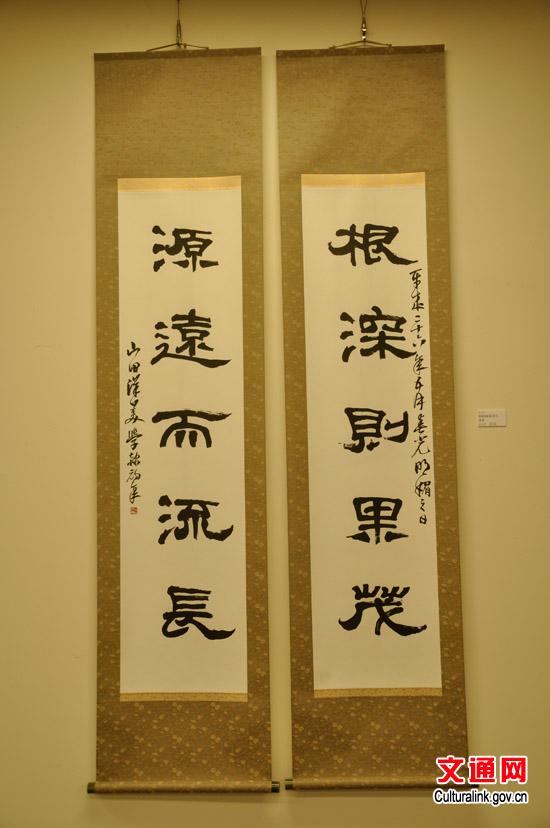 根深則果茂
平成二十六年五月春光明媚之日
源遠而流長
山田
文通网
Culturalink.gov.cn